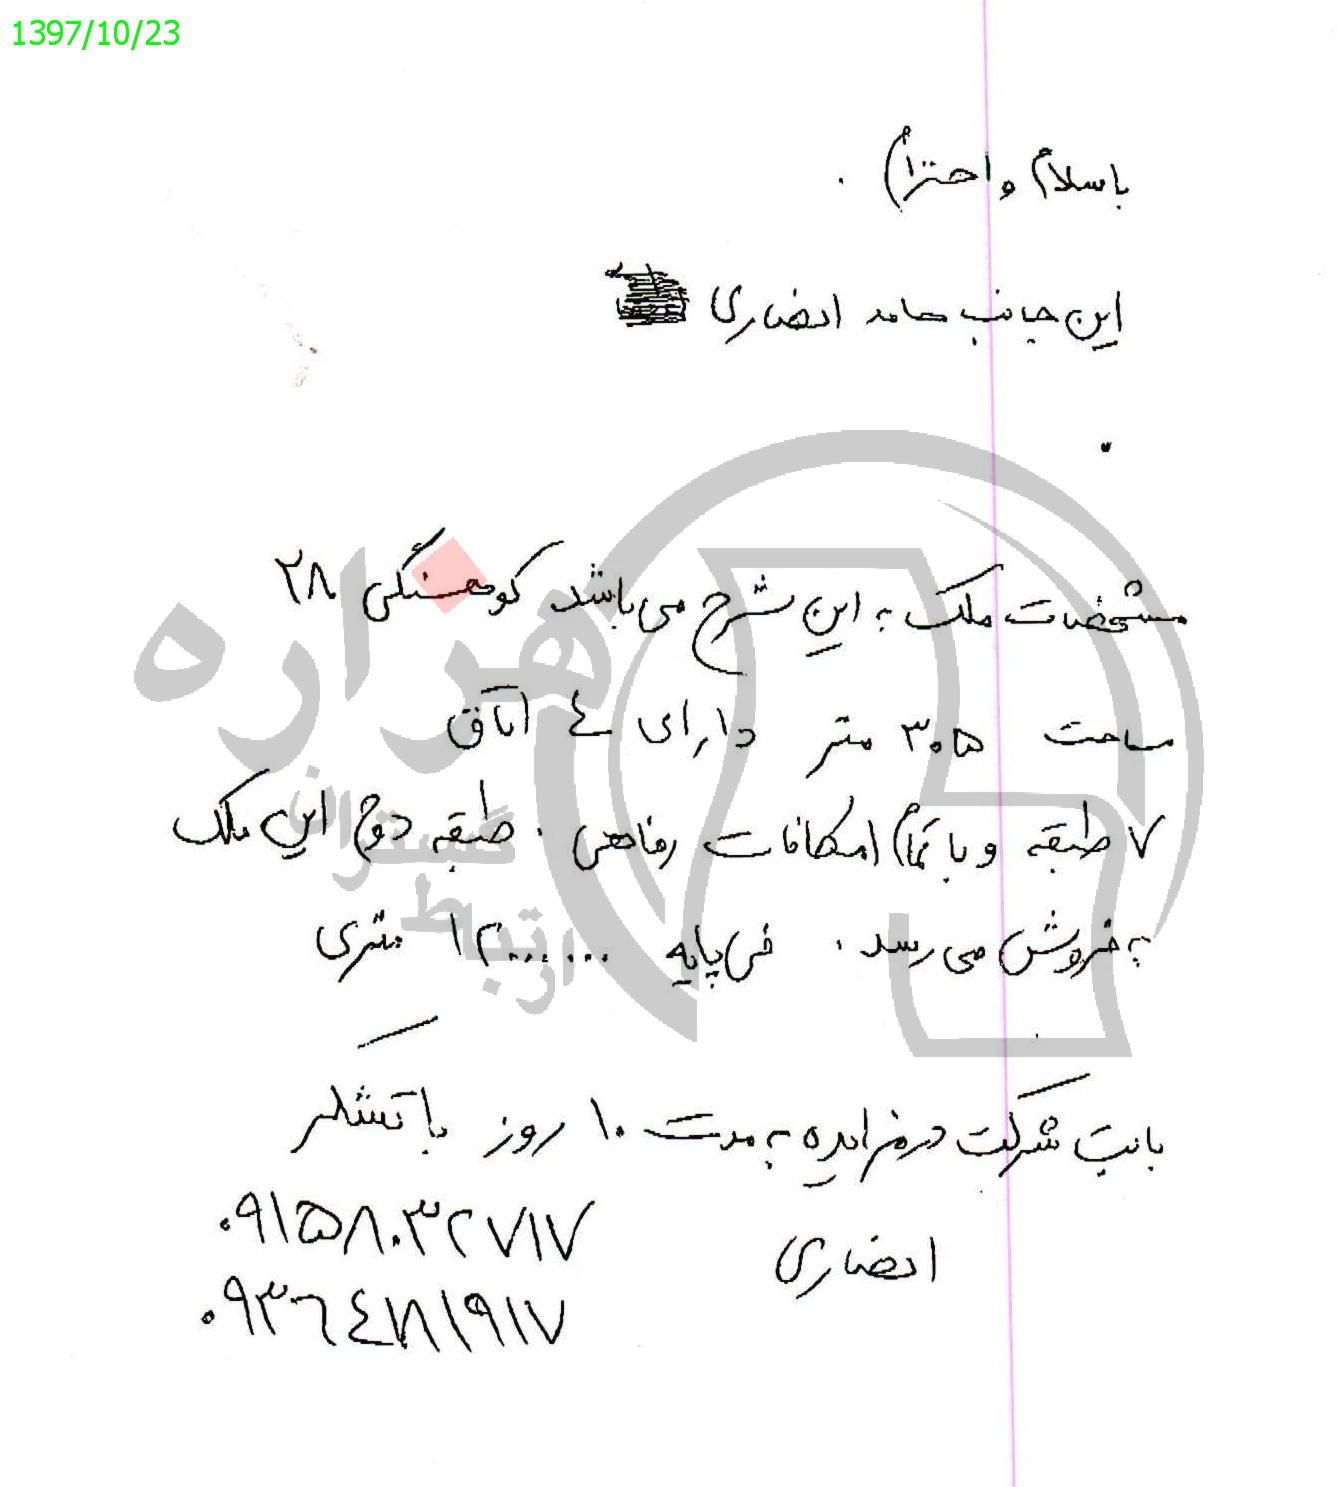 1397/10/23
با سلام و احترام .
این جانب حامد انصاری
مشخصات ملک به این شرح می باشد کوهسنگی ۲۸
مساحت ۳۰۵ متر دارای ٤ اتاق
۷ طبقه و با تمام امکانات رفاهی . طبقه دوم این ملک
به فروش می رسد . فی پایه ۱۲۰۰۰۰۰۰۰ متری
بابت شرکت در مزایده به مدت ۱۰ روز با تشکر
انصاری
۰۹۱۵۸۰۳۲۷۱۷
۰۹۳۶٤۸۱۹۱۷
هزاره
گستران
ارتباط